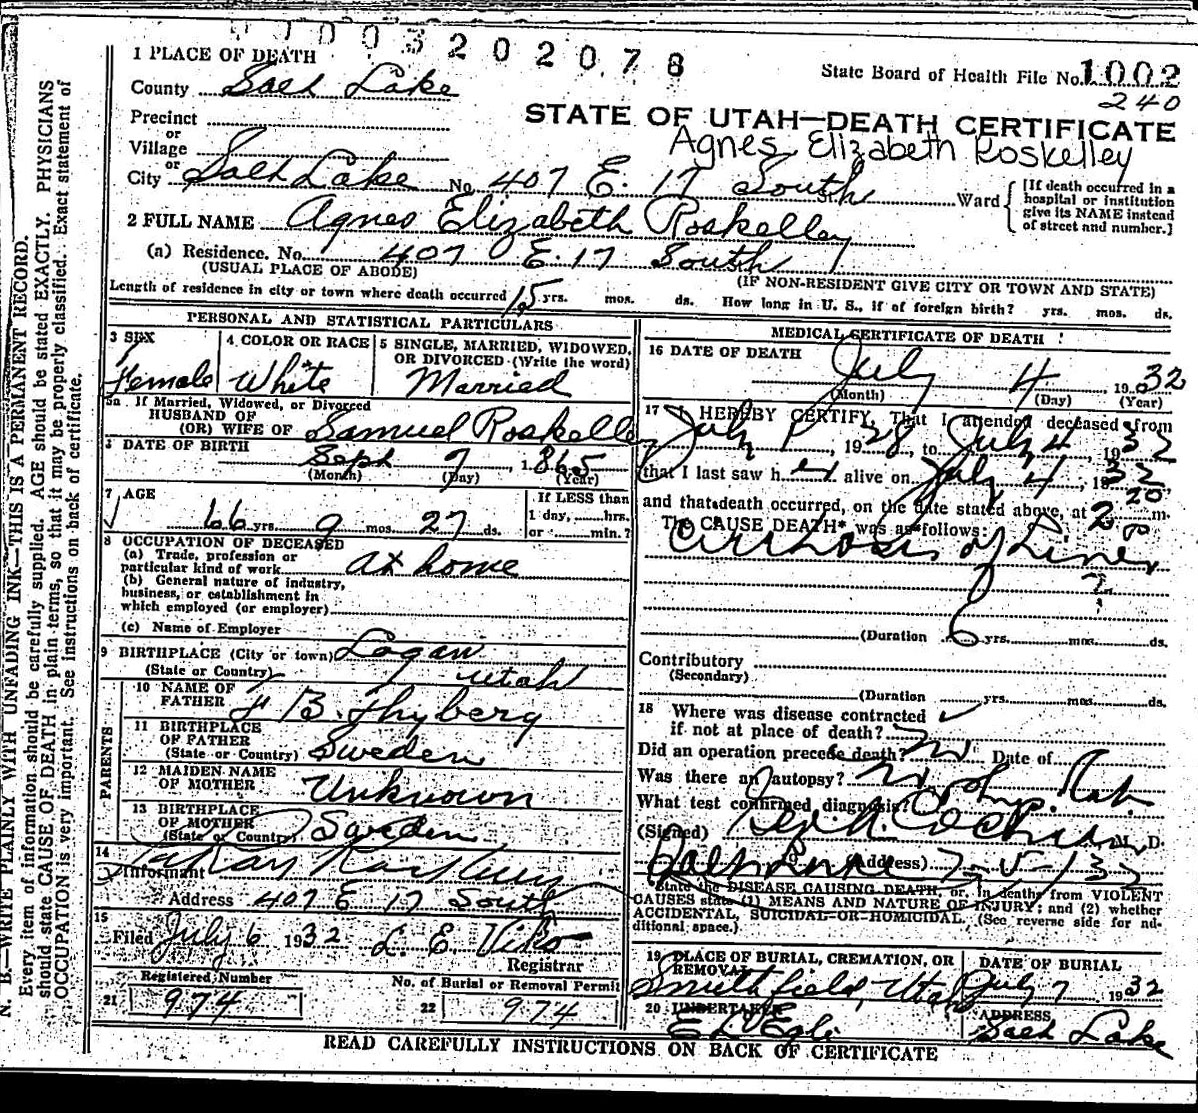 0003202078
1 PLACE OF DEATH
State Board of Health File No. 1002
County Salt Lake
240
STATE OF UTAH—DEATH CERTIFICATE
Precinct
or
Agnes Elizabeth Roskelley
Village
or
City Salt Lake No. 407 E. 17 South Ward
[If death occurred in a
hospital or institution
give its NAME instead
of street and number.]
2 FULL NAME Agnes Elizabeth Roskelley
(a) Residence. No. 407 E. 17 South
(USUAL PLACE OF ABODE)
(IF NON-RESIDENT GIVE CITY OR TOWN AND STATE)
Length of residence in city or town where death occurred 15 yrs. mos. ds. How long in U. S., if of foreign birth? yrs. mos. ds.
PERSONAL AND STATISTICAL PARTICULARS
3 SEX
Female
4 COLOR OR RACE
White
5 SINGLE, MARRIED, WIDOWED,
OR DIVORCED (Write the word)
Married
5a If Married, Widowed, or Divorced
HUSBAND OF
(OR) WIFE OF Samuel Roskelley
DATE OF BIRTH
Sept 7, 1865
(Month) (Day) (Year)
7 AGE
66 yrs. 9 mos. 27 ds.
If LESS than
1 day, hrs.
or min. ?
8 OCCUPATION OF DECEASED
(a) Trade, profession or
particular kind of work at home
(b) General nature of industry,
business, or establishment in
which employed (or employer)
(c) Name of Employer
9 BIRTHPLACE (City or town) Logan
(State or Country) Utah
PARENTS
10 NAME OF
FATHER F B. Thyberg
11 BIRTHPLACE
OF FATHER
(State or Country) Sweden
12 MAIDEN NAME
OF MOTHER Unknown
13 BIRTHPLACE
OF MOTHER
(State or Country) Sweden
14
Informant
Address 407 E 17 South
15
Filed July 6 1932 L. E. Viko
Registrar
Registered Number
21 974
No. of Burial or Removal Permit
22 974
MEDICAL CERTIFICATE OF DEATH
16 DATE OF DEATH
July 4 1932
(Month) (Day) (Year)
17 I HEREBY CERTIFY, That I attended deceased from
July 1, 1928, to July 4, 1932
that I last saw her alive on July 4, 1932
and that death occurred, on the date stated above, at 2 m.
The CAUSE DEATH* was as follows:
Cirrhosis of Liver
?
(Duration 6 yrs. mos. ds.
Contributory
(Secondary)
(Duration yrs. mos. ds.
18 Where was disease contracted
if not at place of death?
Did an operation precede death? no Date of
Was there an autopsy? no
What test confirmed diagnosis?
(Signed) M. D.
Salt Lake (Address) 7-5-132
*State the DISEASE CAUSING DEATH, or, in deaths from VIOLENT
CAUSES state (1) MEANS AND NATURE OF INJURY; and (2) whether
ACCIDENTAL, SUICIDAL OR HOMICIDAL. (See reverse side for ad-
ditional space.)
19 PLACE OF BURIAL, CREMATION, OR
REMOVAL
Smithfield, Utah
DATE OF BURIAL
July 7 1932
20 UNDERTAKER
ADDRESS
Salt Lake
READ CAREFULLY INSTRUCTIONS ON BACK OF CERTIFICATE
N. B.—WRITE PLAINLY WITH UNFADING INK—THIS IS A PERMANENT RECORD.
Every item of information should be carefully supplied. AGE should be stated EXACTLY. PHYSICIANS
should state CAUSE OF DEATH in plain terms, so that it may be properly classified. Exact statement of
OCCUPATION is very important. See instructions on back of certificate.